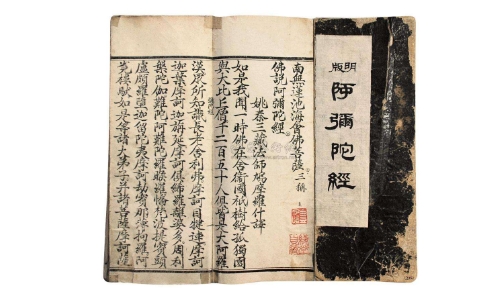 明版
阿彌陀經
南無蓮池海會佛菩薩 三稱
佛說阿彌陀經
姚秦三藏法師鳩摩羅什譯
如是我聞一時佛在舍衛國祇樹給孤獨園
與大比丘僧千二百五十人俱皆是大阿羅
漢眾所知識長老舍利弗摩訶目犍連摩訶
迦葉摩訶迦旃延摩訶俱絺羅離婆多周利
槃陀伽難陀阿難陀羅睺羅憍梵波提賓頭
盧頗羅墮迦留陀夷摩訶劫賓那薄拘羅阿
樓馱如是等諸大弟子并諸菩薩摩訶